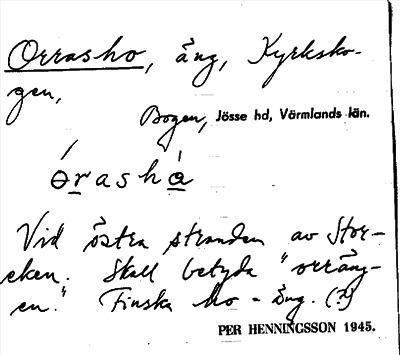 Orrasho, äng, Kyrksko-
gen,
Bogen, Jösse hd, Värmlands län.
órashå̀
Vid östra stranden av Stor-
eken. Skall betyda "orräng-
en." Finska ho = äng. (?)
PER HENNINGSSON 1945.